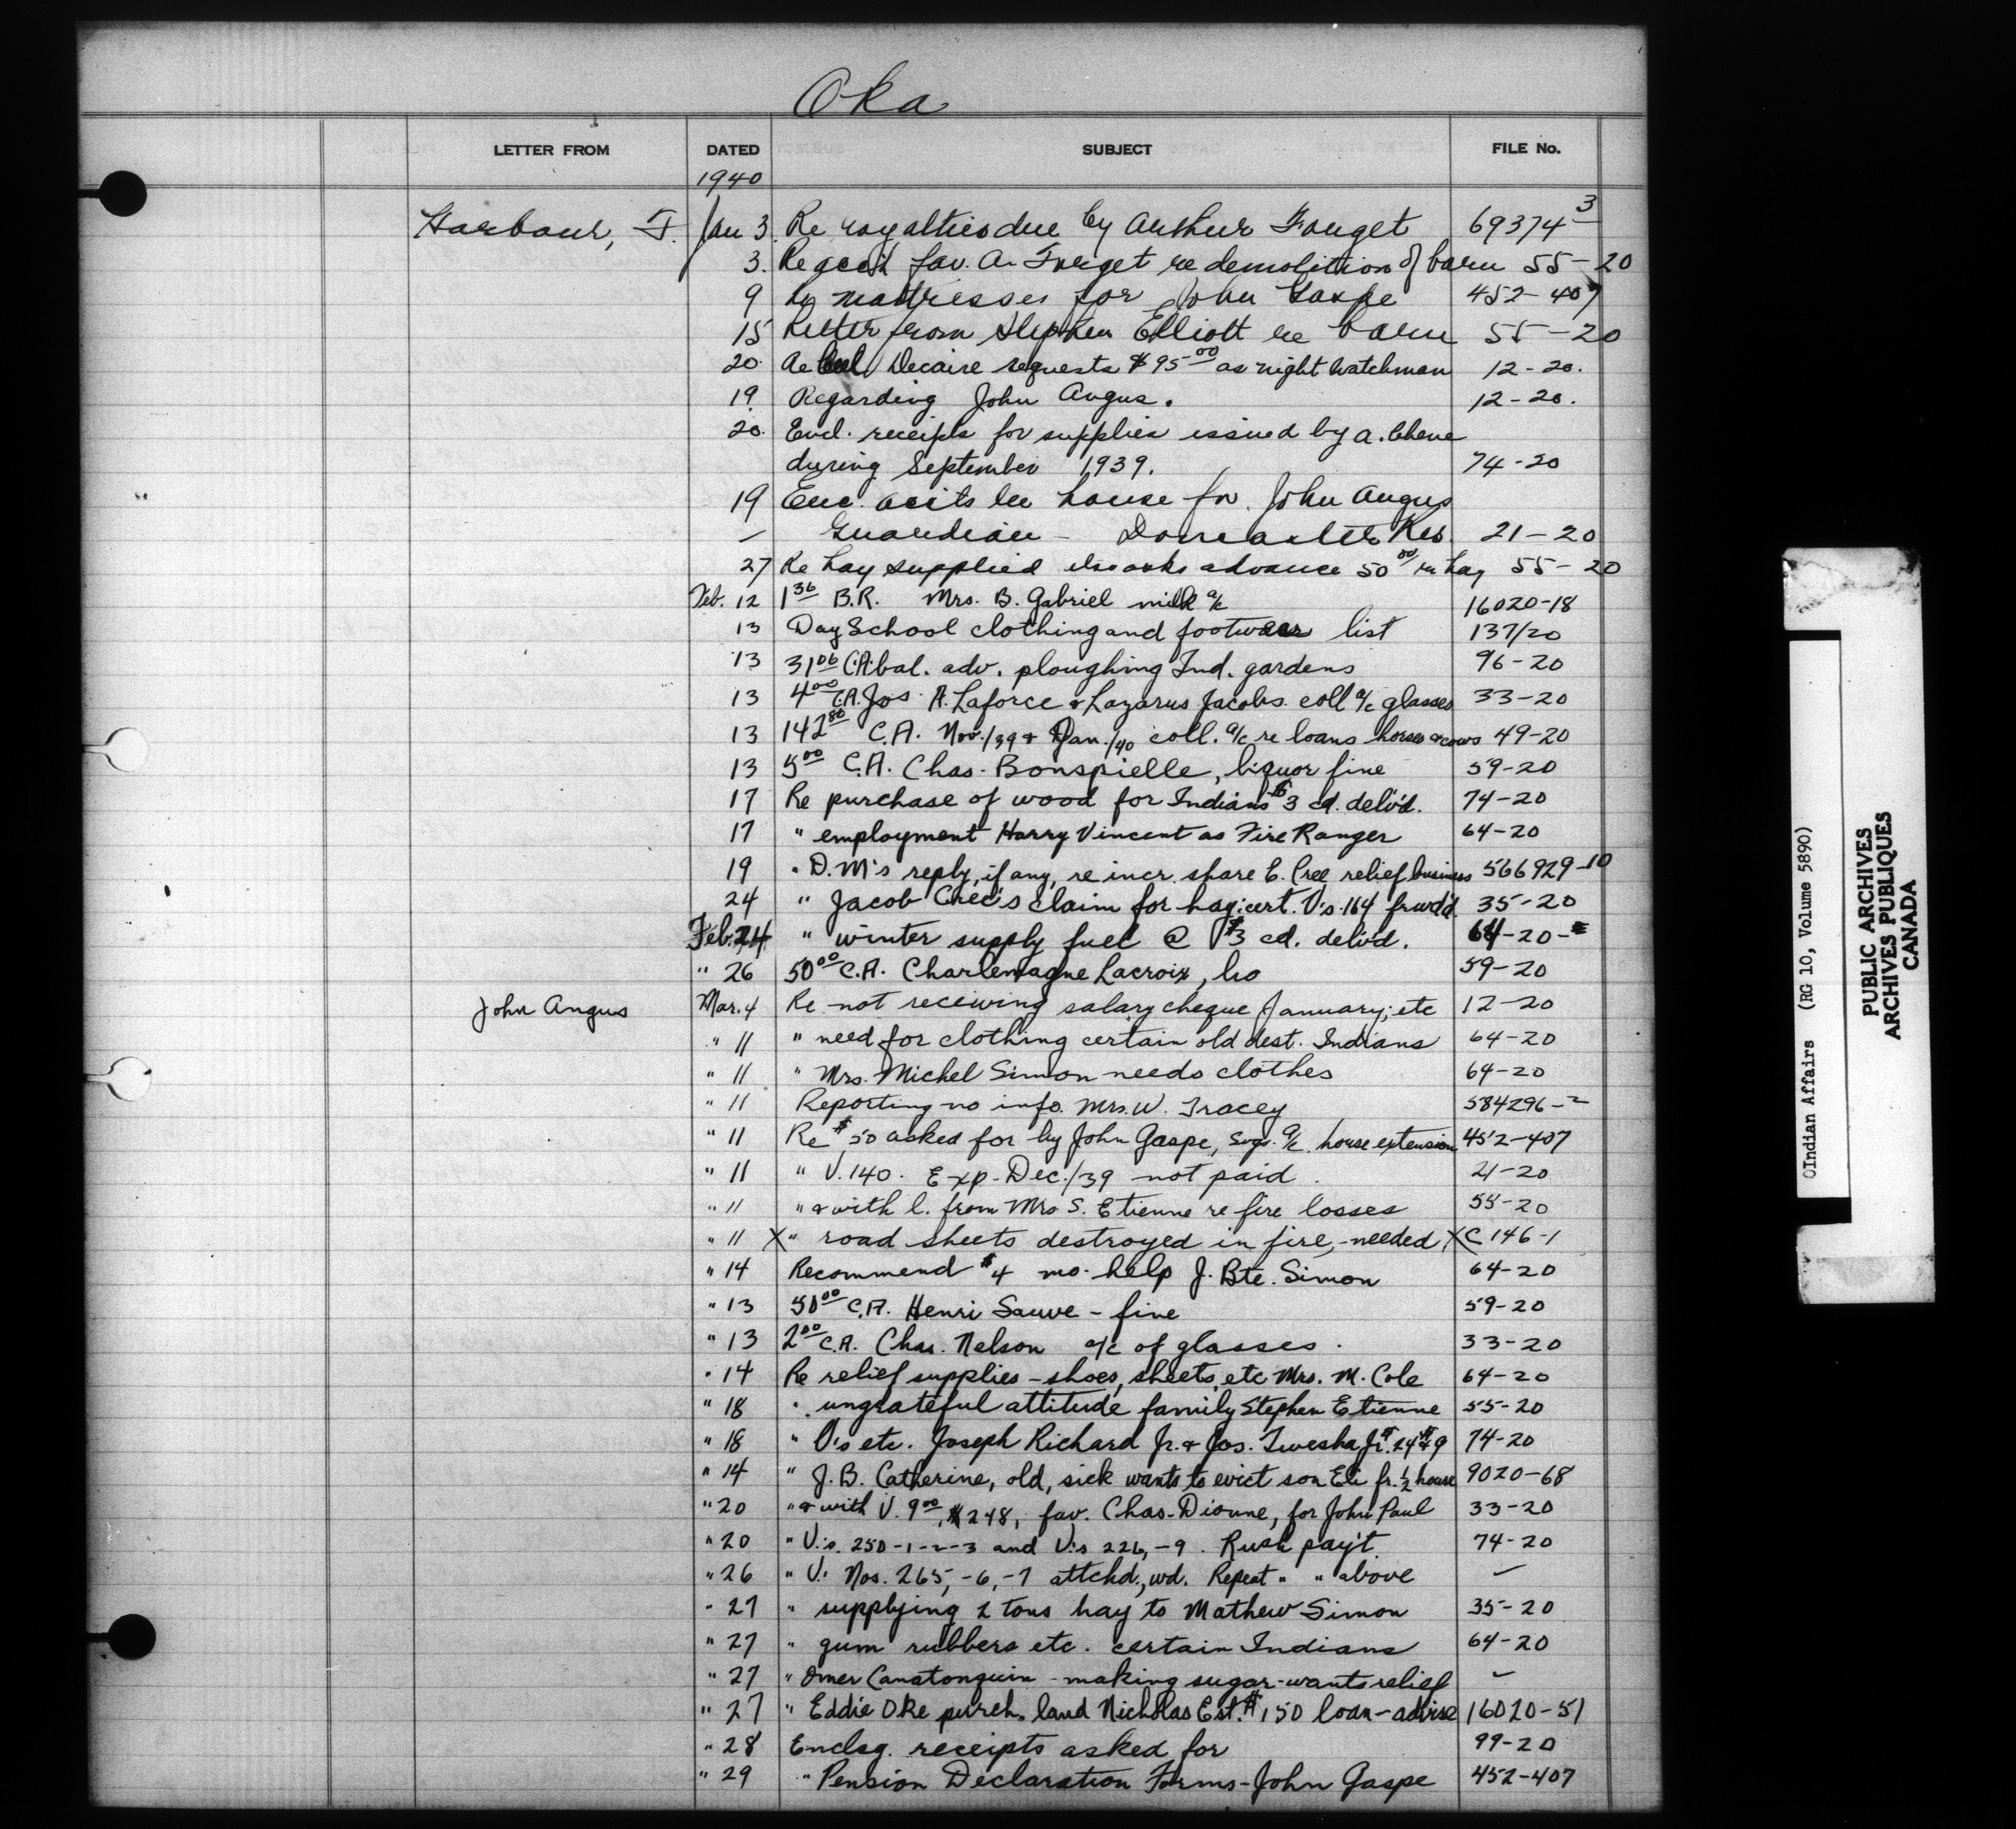 Oka
LETTER FROM DATED SUBJECT FILE No.
1940
Harbour, J. Jan 3. Re royalties due by Arthur Forget 69374-3
3. Re acct fav. A. Forget re demolition of barn 55-20
9 Re mattresses for John Gaspe 452-407
15 Letter from Stephen Elliott re barn 55-20
20 Re Decaire requests $95.00 as night watchman 12-20.
19 Regarding John Angus. 12-20.
20. Encl. receipts for supplies issued by A. Chene
during September 1939. 74-20
19 Enc. accts re house for John Angus
— Guardian - Doncaster Res. 21-20
27 Re hay supplied also asks advance 50.00 re hay 55-20
Feb. 12 1.36 B.R. Mrs. B. Gabriel milk a/c 16020-18
13 Day School clothing and footwear list 137/20
13 31.06 C.A. bal. adv. ploughing Ind. gardens 96-20
13 4.00 C.A. Jos. A. Laforce & Lazarus Jacobs coll a/c glasses 33-20
13 142.80 C.A. Nov./39 & Jan./40 coll. a/c re loans horses & cows 49-20
13 5.00 C.A. Chas. Bonspielle, liquor fine 59-20
17 Re purchase of wood for Indians $3 cd. deliv'd. 74-20
17 " employment Harry Vincent as Fire Ranger 64-20
19 " D.M's reply, if any, re incr. share E. Cree relief business 566929-10
24 " Jacob Cree's claim for hay: cert. V's 164 frwd'd. 35-20
Feb. 24 " winter supply fuel @ $3 cd. deliv'd. 64-20-
" 26 50.00 C.A. Charlemagne Lacroix, 59-20
John Angus Mar. 4 Re not receiving salary cheque January; etc 12-20
" 11 " need for clothing certain old dest. Indians 64-20
" 11 " Mrs. Michel Simon needs clothes 64-20
" 11 Reporting no info. Mrs. W. Tracey 584296-2
" 11 Re $50 asked for by John Gaspe, Svgs. a/c house extension 452-407
" 11 " V. 140. Exp. Dec./39 not paid. 21-20
" 11 " & with l. from Mrs S. Etienne re fire losses 55-20
" 11 X " road sheets destroyed in fire, - needed X C 146-1
" 14 Recommend $4 mo. help J. Bte. Simon 64-20
" 13 50.00 C.A. Henri Sauve - fine 59-20
" 13 2.00 C.A. Chas. Nelson a/c of glasses. 33-20
" 14 Re relief supplies - shoes, sheets, etc Mrs. M. Cole 64-20
" 18 " ungrateful attitude family Stephen Etienne 55-20
" 18 " V's etc. Joseph Richard Jr. & Jos. Twesha Jr. $24 & $9 74-20
" 14 " J.B. Catherine, old, sick wants to evict son Eli fr. ½ house 9020-68
" 20 " & with V. 9.00, #248, fav. Chas. Dionne, for John Paul 33-20
" 20 " V's. 250-1-2-3 and V's 226,-9. Rush pay't. 74-20
" 26 " V. Nos. 265,-6,-7 attchd., wd. Repeat " " above —
" 27 " supplying 2 tons hay to Mathew Simon 35-20
" 27 " gum rubbers etc. certain Indians 64-20
" 27 " Omer Canatonquin - making sugar - wants relief —
" 27 " Eddie Oke purch. land Nicholas Est. $150 loan - advise 16020-51
" 28 Enclsg. receipts asked for 99-20
" 29 " Pension Declaration Forms - John Gaspe 452-407
©Indian Affairs (RG 10, Volume 5890)
PUBLIC ARCHIVES
ARCHIVES PUBLIQUES
CANADA